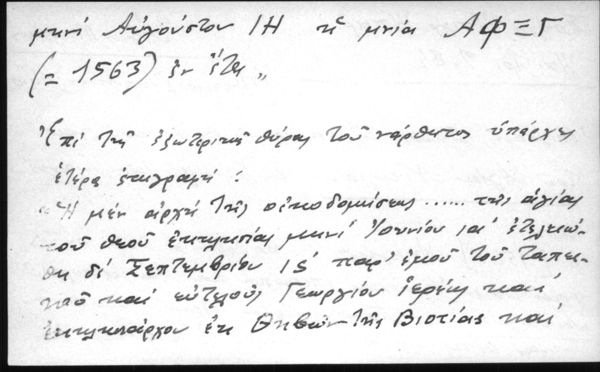 μηνί Αὐγούστου ΙΗ κ̀ μνία ΑΦΞΓ
(= 1563) ἐν ἔτει „
Ἐπί τῆς ἐξωτερικῆς θύρας τοῦ νάρθηκος ὑπάρχει
ἑτέρα ἐπιγραφή :
"Ἡ μέν ἀρχή τῆς οἰκοδομίσεως ...... τῆς ἁγίας
τοῦ Θεοῦ ἐκκλησίας μηνί Ἰουνίου ια' ἐτελειώ-
θη δέ Σεπτεμβρίου ις' παρ' ἐμοῦ τοῦ ταπει-
νοῦ καί εὐτελοῦς Γεωργίου ἱερέως καί
ἐκκλησιάρχου ἐκ Θηβῶν τῆς Βιοτίας καί